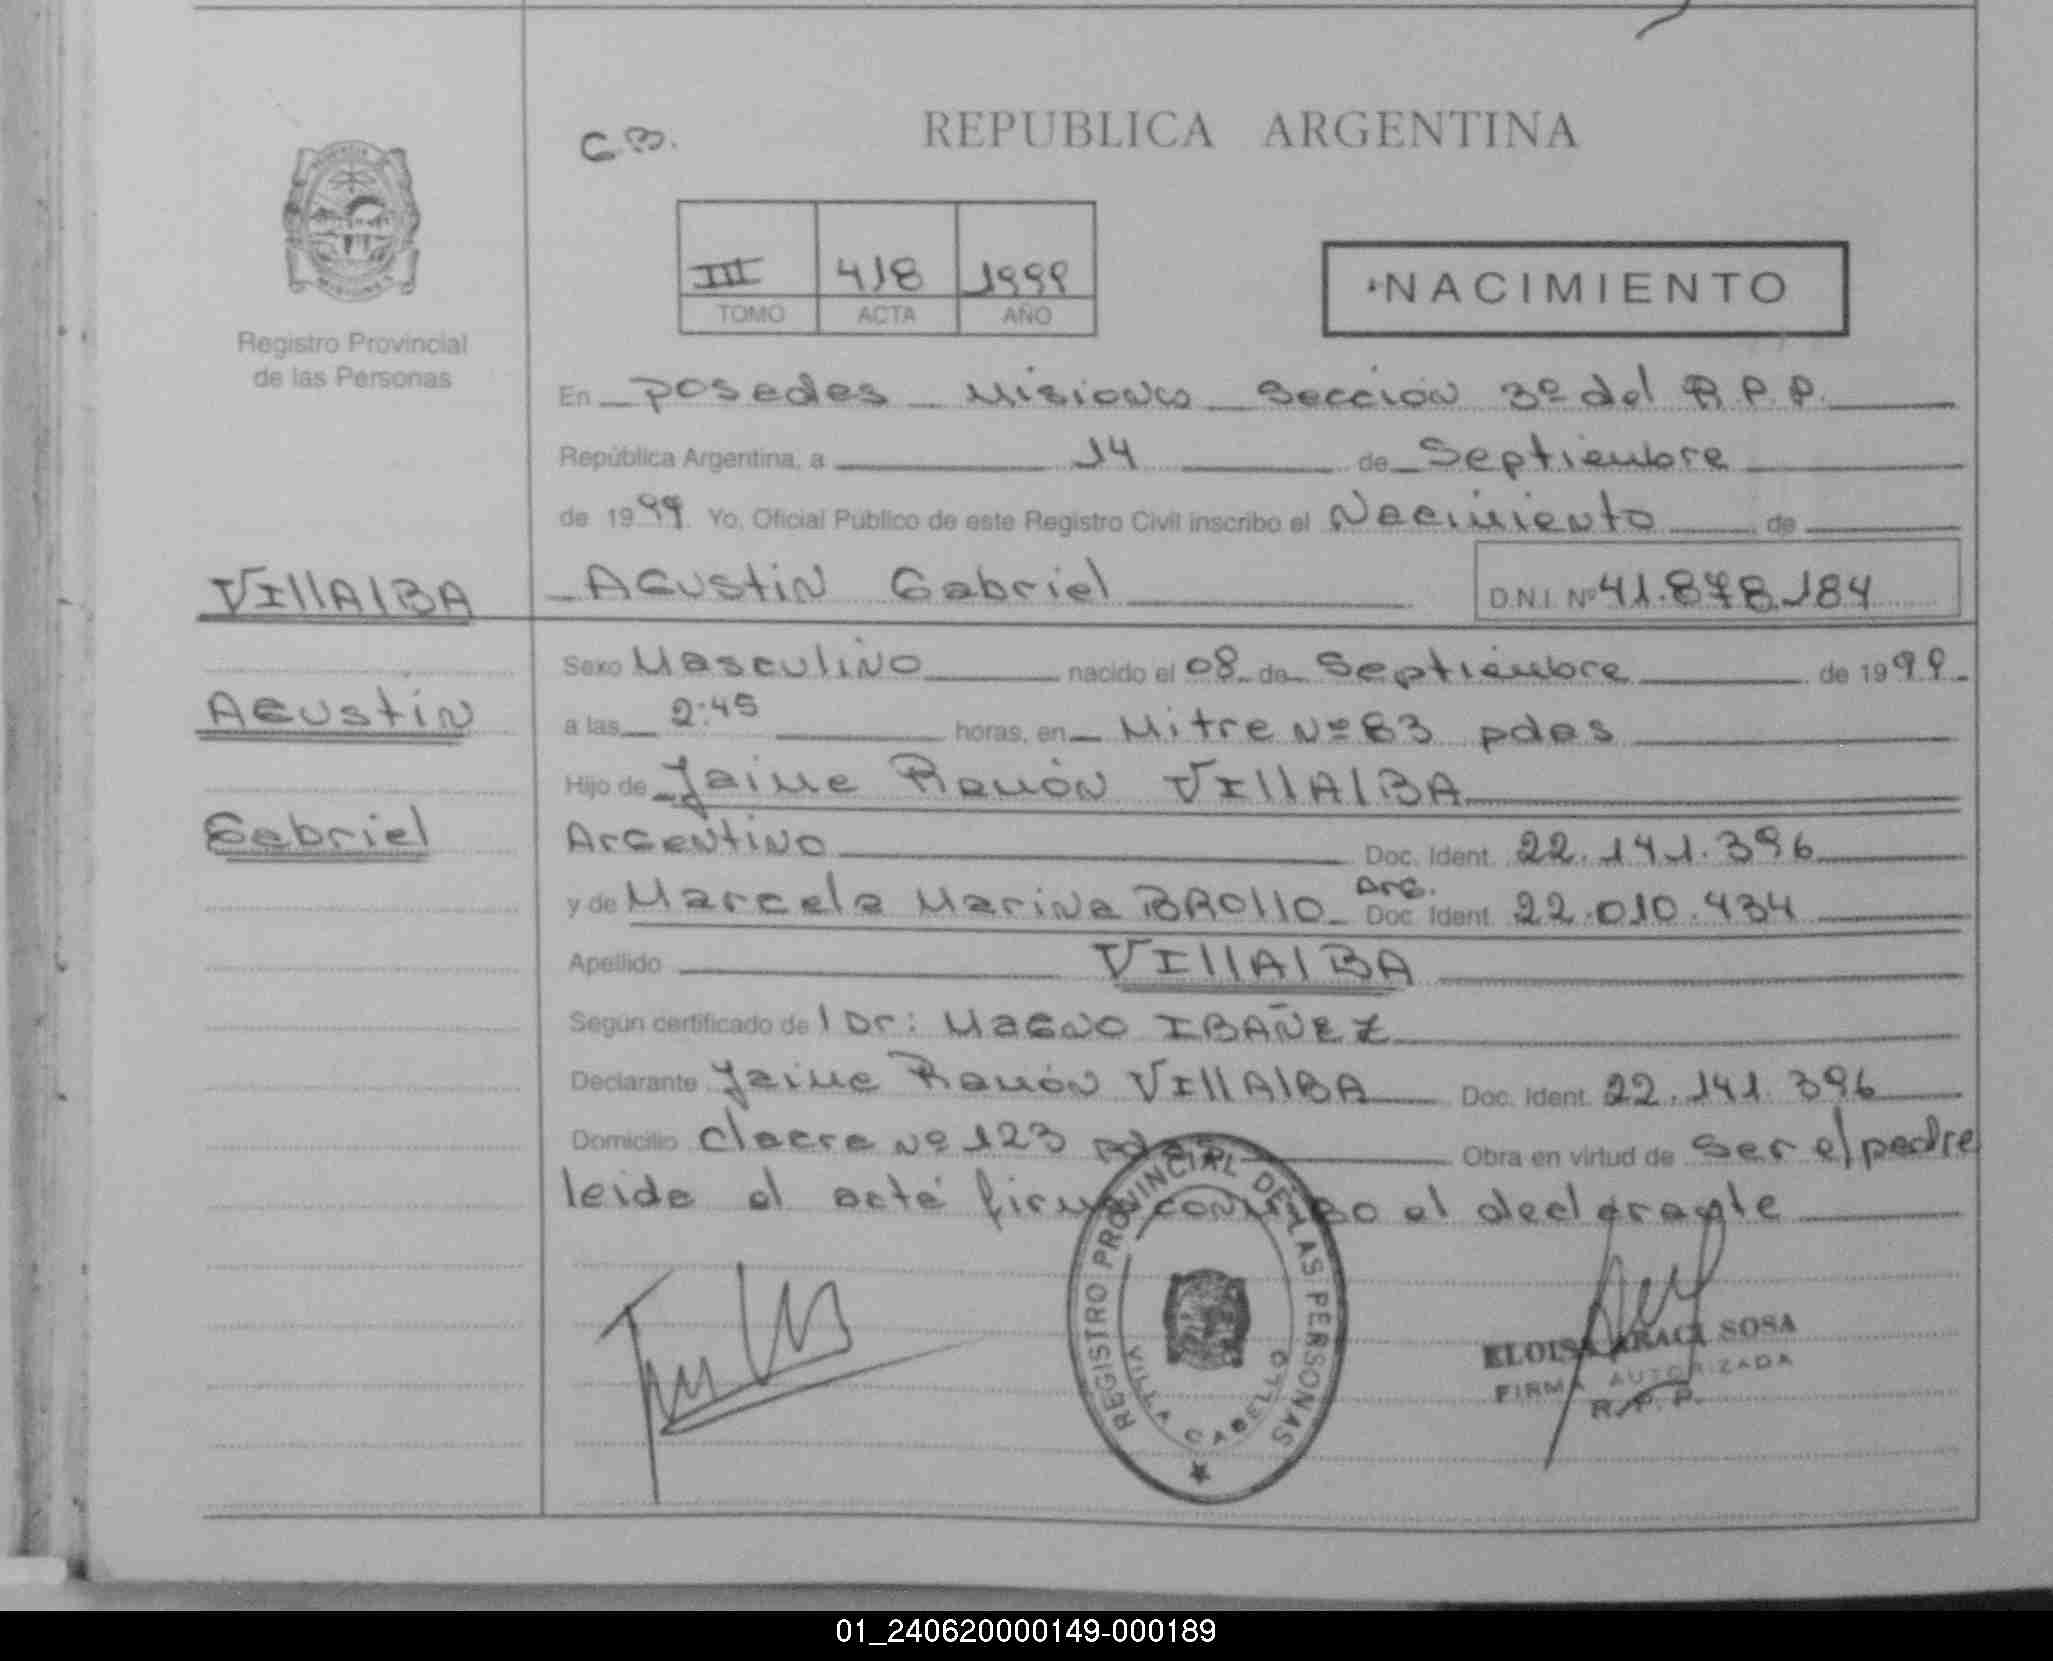 REPUBLICA ARGENTINA
C.B.
III 418 1999
TOMO ACTA AÑO
NACIMIENTO
Registro Provincial
de las Personas
En Posadas Misiones Sección 3º del R.P.P.
República Argentina, a 14 de Septiembre
de 1999 Yo, Oficial Público de este Registro Civil inscribo el Nacimiento de
VIllAlBA Agustin Gabriel D.N.I. Nº 41.878.184
Sexo Masculino nacido el 08 de Septiembre de 1999
Agustin
a las 2:45 horas, en Mitre Nº 83 pdas
Hijo de Jaime Ramón VIllAlBA
Gabriel
Argentino Doc. Ident. 22.141.396
y de Marcela Marina BROllO Arg. Doc. Ident. 22.010.434
Apellido VIllAlBA
Según certificado del Dr: Magno IBAÑEZ
Declarante Jaime Ramón VIllAlBA Doc. Ident. 22.141.396
Domicilio chacra Nº 123 pdas Obra en virtud de ser el padre
leida el acta firma conmigo el declarante
REGISTRO PROVINCIAL DE LAS PERSONAS
VILLA CABELLO
ELOISA ARACI SOSA
FIRMA AUTORIZADA
R.P.P.
01_240620000149-000189